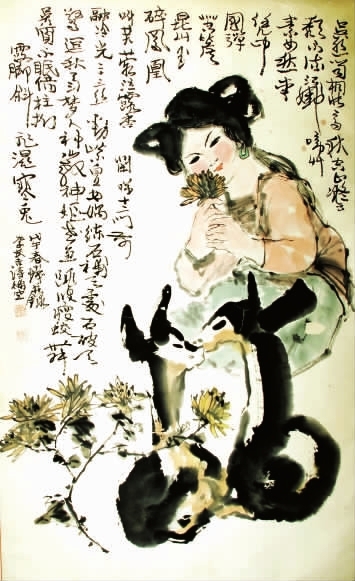 吳絲蜀桐張高秋空山凝云
頹不流江娥啼竹
素女愁李
憑中
國彈
箜篌
崑山玉
碎鳳凰
叫芙蓉泣露香蘭笑十二門前
融冷光二十三絲動紫皇女媧煉石補天處石破天
驚逗秋雨夢入神山教神嫗老魚跳波瘦蛟舞
吳質不眠倚桂樹
露腳斜飛濕寒兔
戊午春